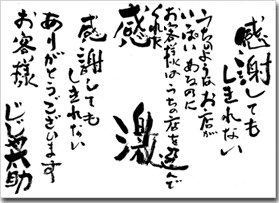 感謝しても
しきれない
うちのようなお店が
いっぱいあるのに
お客様は、うちの店を選んで
くれた
感激
感謝しても
しきれない
ありがとうございます
お客様
じじや太助